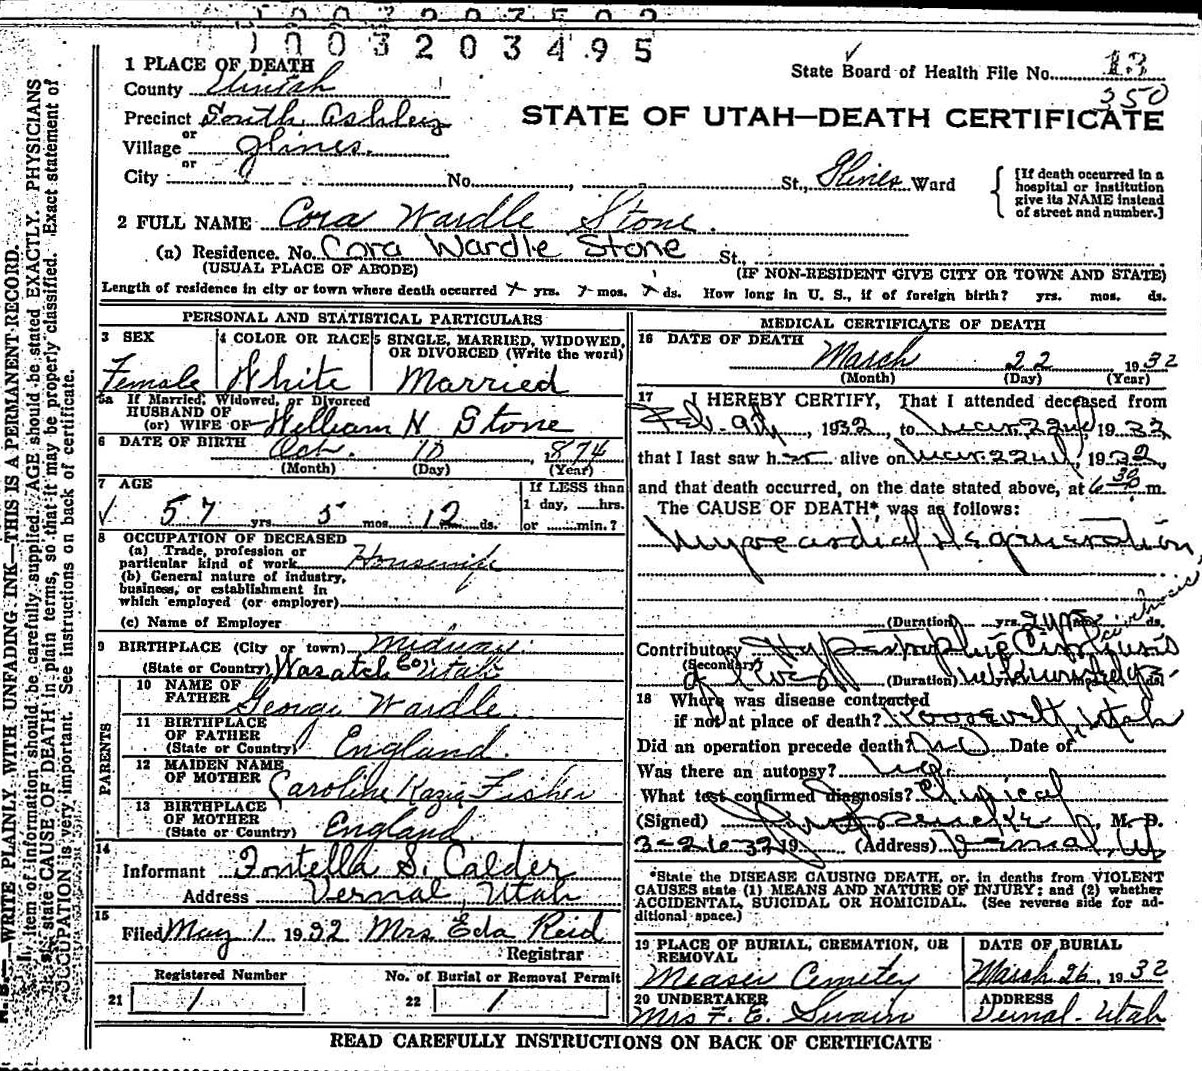 1003203495
1 PLACE OF DEATH
State Board of Health File No. 13
350
County Uintah
STATE OF UTAH—DEATH CERTIFICATE
Precinct South Ashley
or
Village Glines.
or
City No. St., Glines Ward
[If death occurred in a
hospital or institution
give its NAME instead
of street and number.]
2 FULL NAME Cora Wardle Stone.
(a) Residence. No. Cora Wardle Stone St.,
(USUAL PLACE OF ABODE) (IF NON-RESIDENT GIVE CITY OR TOWN AND STATE)
Length of residence in city or town where death occurred yrs. mos. ds. How long in U. S., if of foreign birth? yrs. mos. ds.
PERSONAL AND STATISTICAL PARTICULARS
3 SEX
Female
4 COLOR OR RACE
White
5 SINGLE, MARRIED, WIDOWED,
OR DIVORCED (Write the word)
Married
5a If Married, Widowed, or Divorced
HUSBAND OF
(or) WIFE OF William H Stone
6 DATE OF BIRTH Oct. 10, 1874
(Month) (Day) (Year)
7 AGE
57 yrs. 5 mos. 12 ds.
If LESS than
1 day, hrs.
or min.?
8 OCCUPATION OF DECEASED
(a) Trade, profession or
particular kind of work Housewife
(b) General nature of industry,
business, or establishment in
which employed (or employer)
(c) Name of Employer
9 BIRTHPLACE (City or town) Midway.
(State or Country) Wasatch Co, Utah
PARENTS
10 NAME OF
FATHER George Wardle
11 BIRTHPLACE
OF FATHER
(State or Country) England.
12 MAIDEN NAME
OF MOTHER Caroline Kazia Fisher
13 BIRTHPLACE
OF MOTHER
(State or Country) England
14
Informant Fontella S. Calder
Address Vernal, Utah
15
Filed May 1 1932 Mrs Eda Reid
Registrar
Registered Number
21 1
No. of Burial or Removal Permit
22 1
MEDICAL CERTIFICATE OF DEATH
16 DATE OF DEATH
March 22 1932
(Month) (Day) (Year)
17 I HEREBY CERTIFY, That I attended deceased from
Feb. 9th, 1932, to Mar. 22nd, 1932
that I last saw her alive on Mar. 22nd, 1932,
and that death occurred, on the date stated above, at 6 30 m.
The CAUSE OF DEATH* was as follows:
Myocardial Degeneration
(Duration) yrs. mos. ds.
Contributory Hypertrophic Cirrhosis
(Secondary) of liver
(Duration)
18 Where was disease contracted
if not at place of death? Roosevelt, Utah
Did an operation precede death? no Date of
Was there an autopsy? no.
What test confirmed diagnosis? Clinical
(Signed) M. D.
3-26-32 19 (Address) Vernal, Ut
*State the DISEASE CAUSING DEATH, or, in deaths from VIOLENT
CAUSES state (1) MEANS AND NATURE OF INJURY; and (2) whether
ACCIDENTAL, SUICIDAL OR HOMICIDAL. (See reverse side for ad-
ditional space.)
19 PLACE OF BURIAL, CREMATION, OR
REMOVAL
Measer Cemetery
DATE OF BURIAL
March 26, 1932
20 UNDERTAKER
Mrs F. E. Swain
ADDRESS
Vernal-Utah
READ CAREFULLY INSTRUCTIONS ON BACK OF CERTIFICATE
WRITE PLAINLY, WITH UNFADING INK—THIS IS A PERMANENT RECORD.
item of information should be carefully supplied. AGE should be stated EXACTLY. PHYSICIANS
state CAUSE OF DEATH in plain terms, so that it may be properly classified. Exact statement of
OCCUPATION is very important. See instructions on back of certificate.